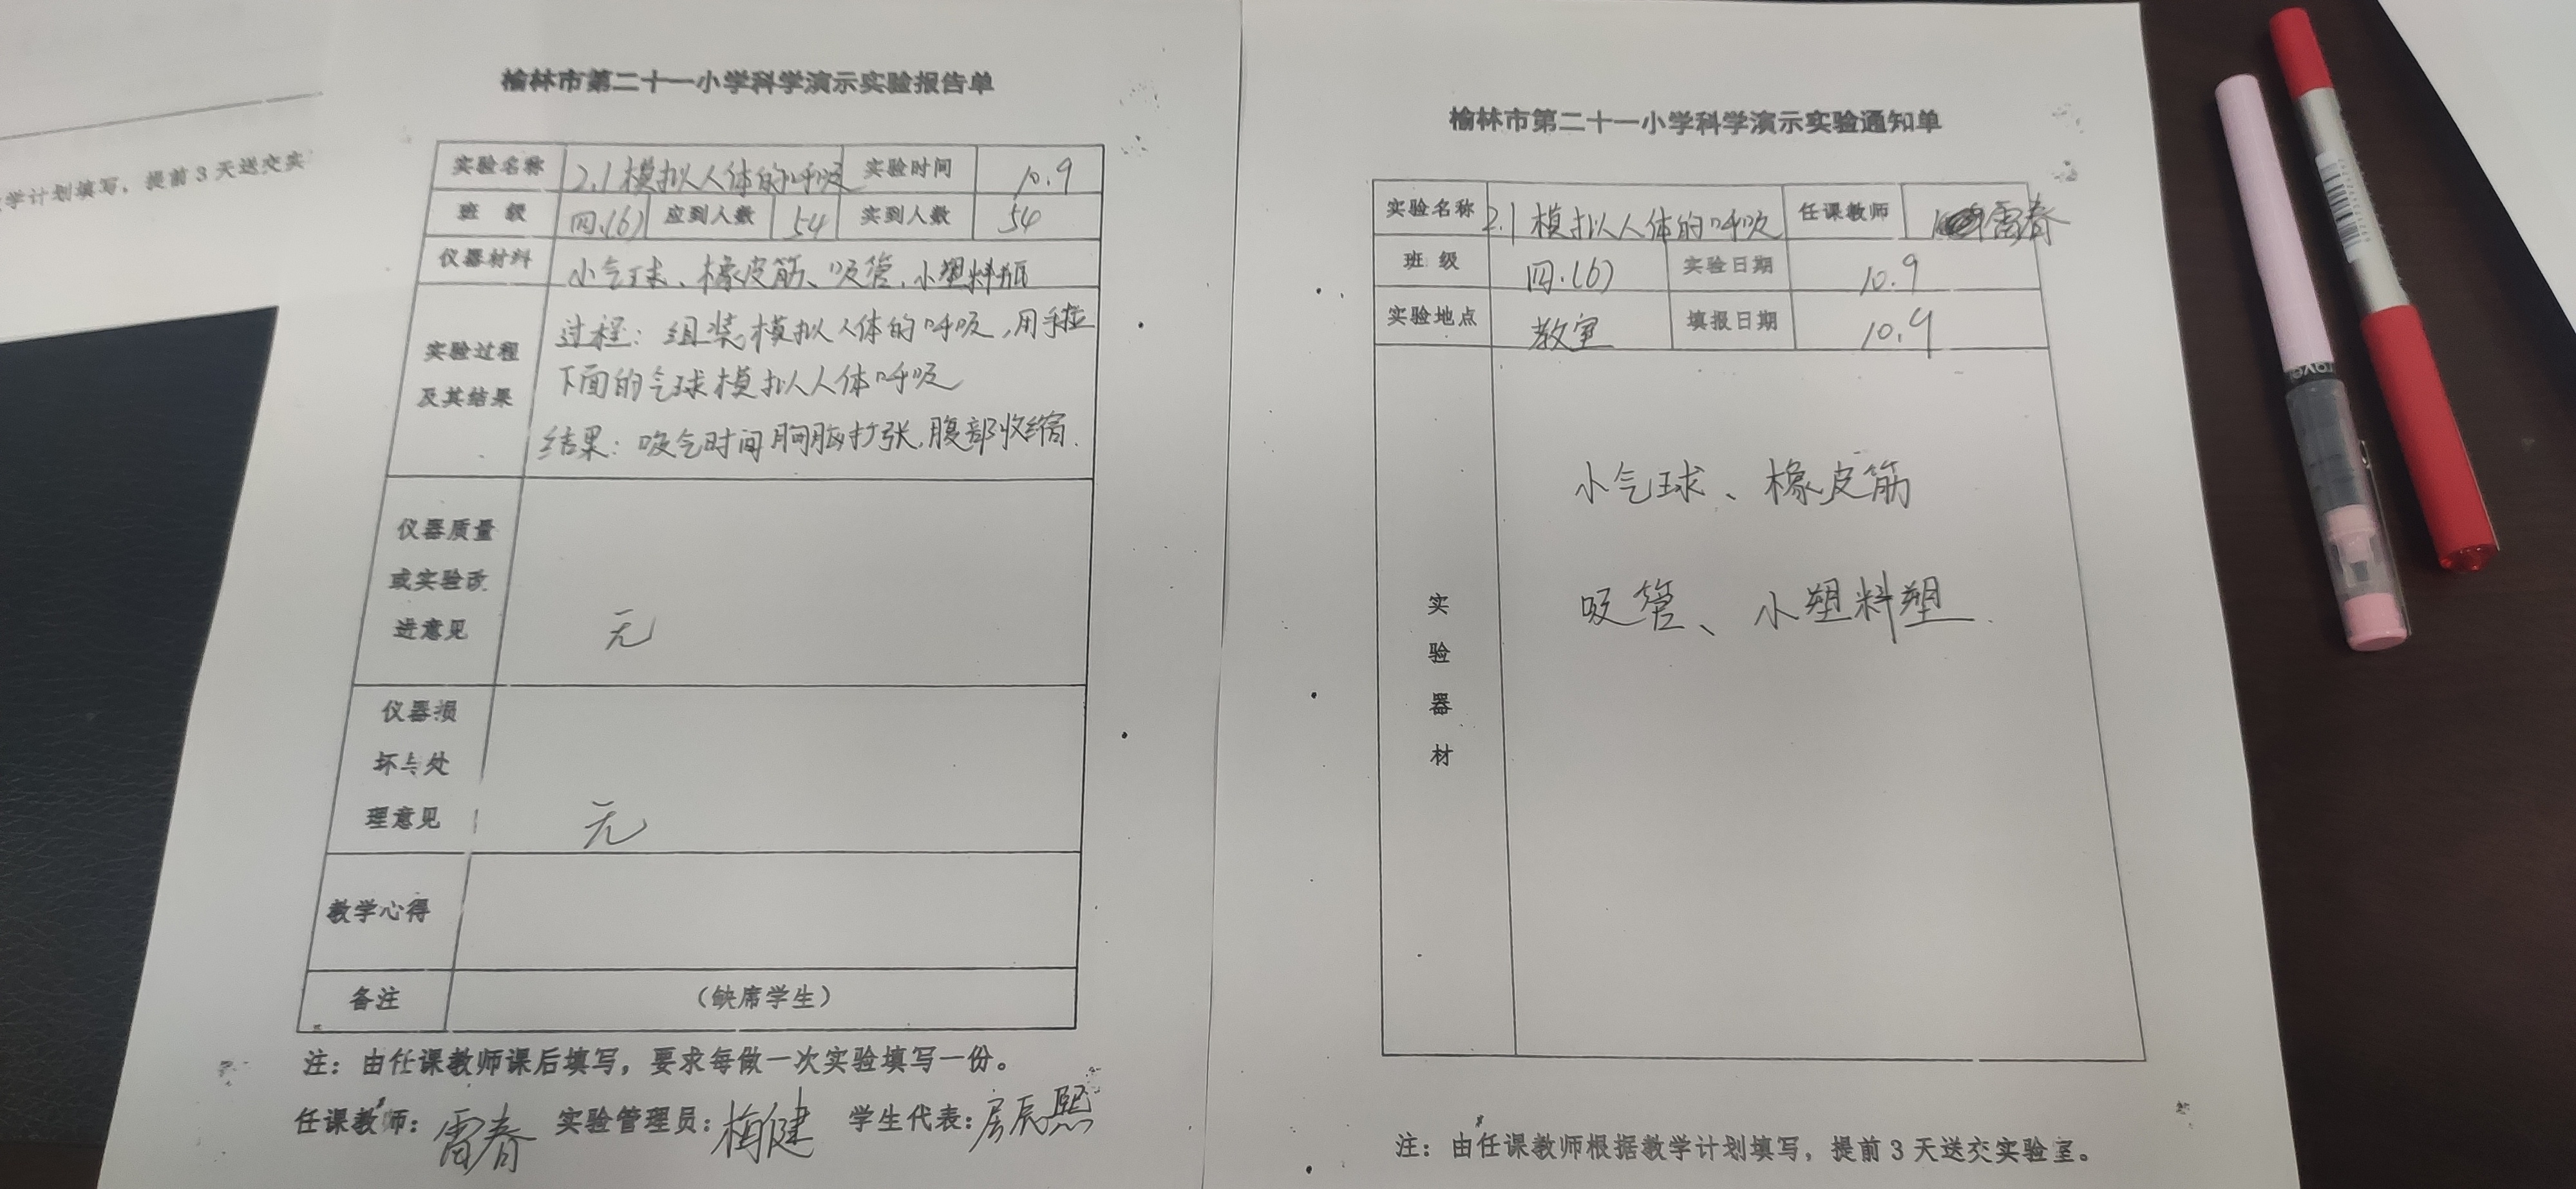 学计划填写，提前3天送交实
榆林市第二十一小学科学演示实验报告单
实验名称 2.1模拟人体的呼吸 实验时间 10.9
班 级 四.(6) 应到人数 54 实到人数 54
仪器材料 小气球、橡皮筋、吸管、小塑料瓶
实验过程
及其结果
过程：组装模拟人体的呼吸，用手拉
下面的气球模拟人体呼吸
结果：吸气时间胸腔扩张，腹部收缩.
仪器质量
或实验改
进意见
无
仪器损
坏与处
理意见
无
教学心得
备注 （缺席学生）
注：由任课教师课后填写，要求每做一次实验填写一份。
任课教师：雷春 实验管理员：梅健 学生代表：房辰熙
榆林市第二十一小学科学演示实验通知单
实验名称 2.1模拟人体的呼吸 任课教师 雷春
班 级 四.(6) 实验日期 10.9
实验地点 教室 填报日期 10.9
实
验
器
材
小气球、橡皮筋
吸管、小塑料塑.
注：由任课教师根据教学计划填写，提前3天送交实验室。